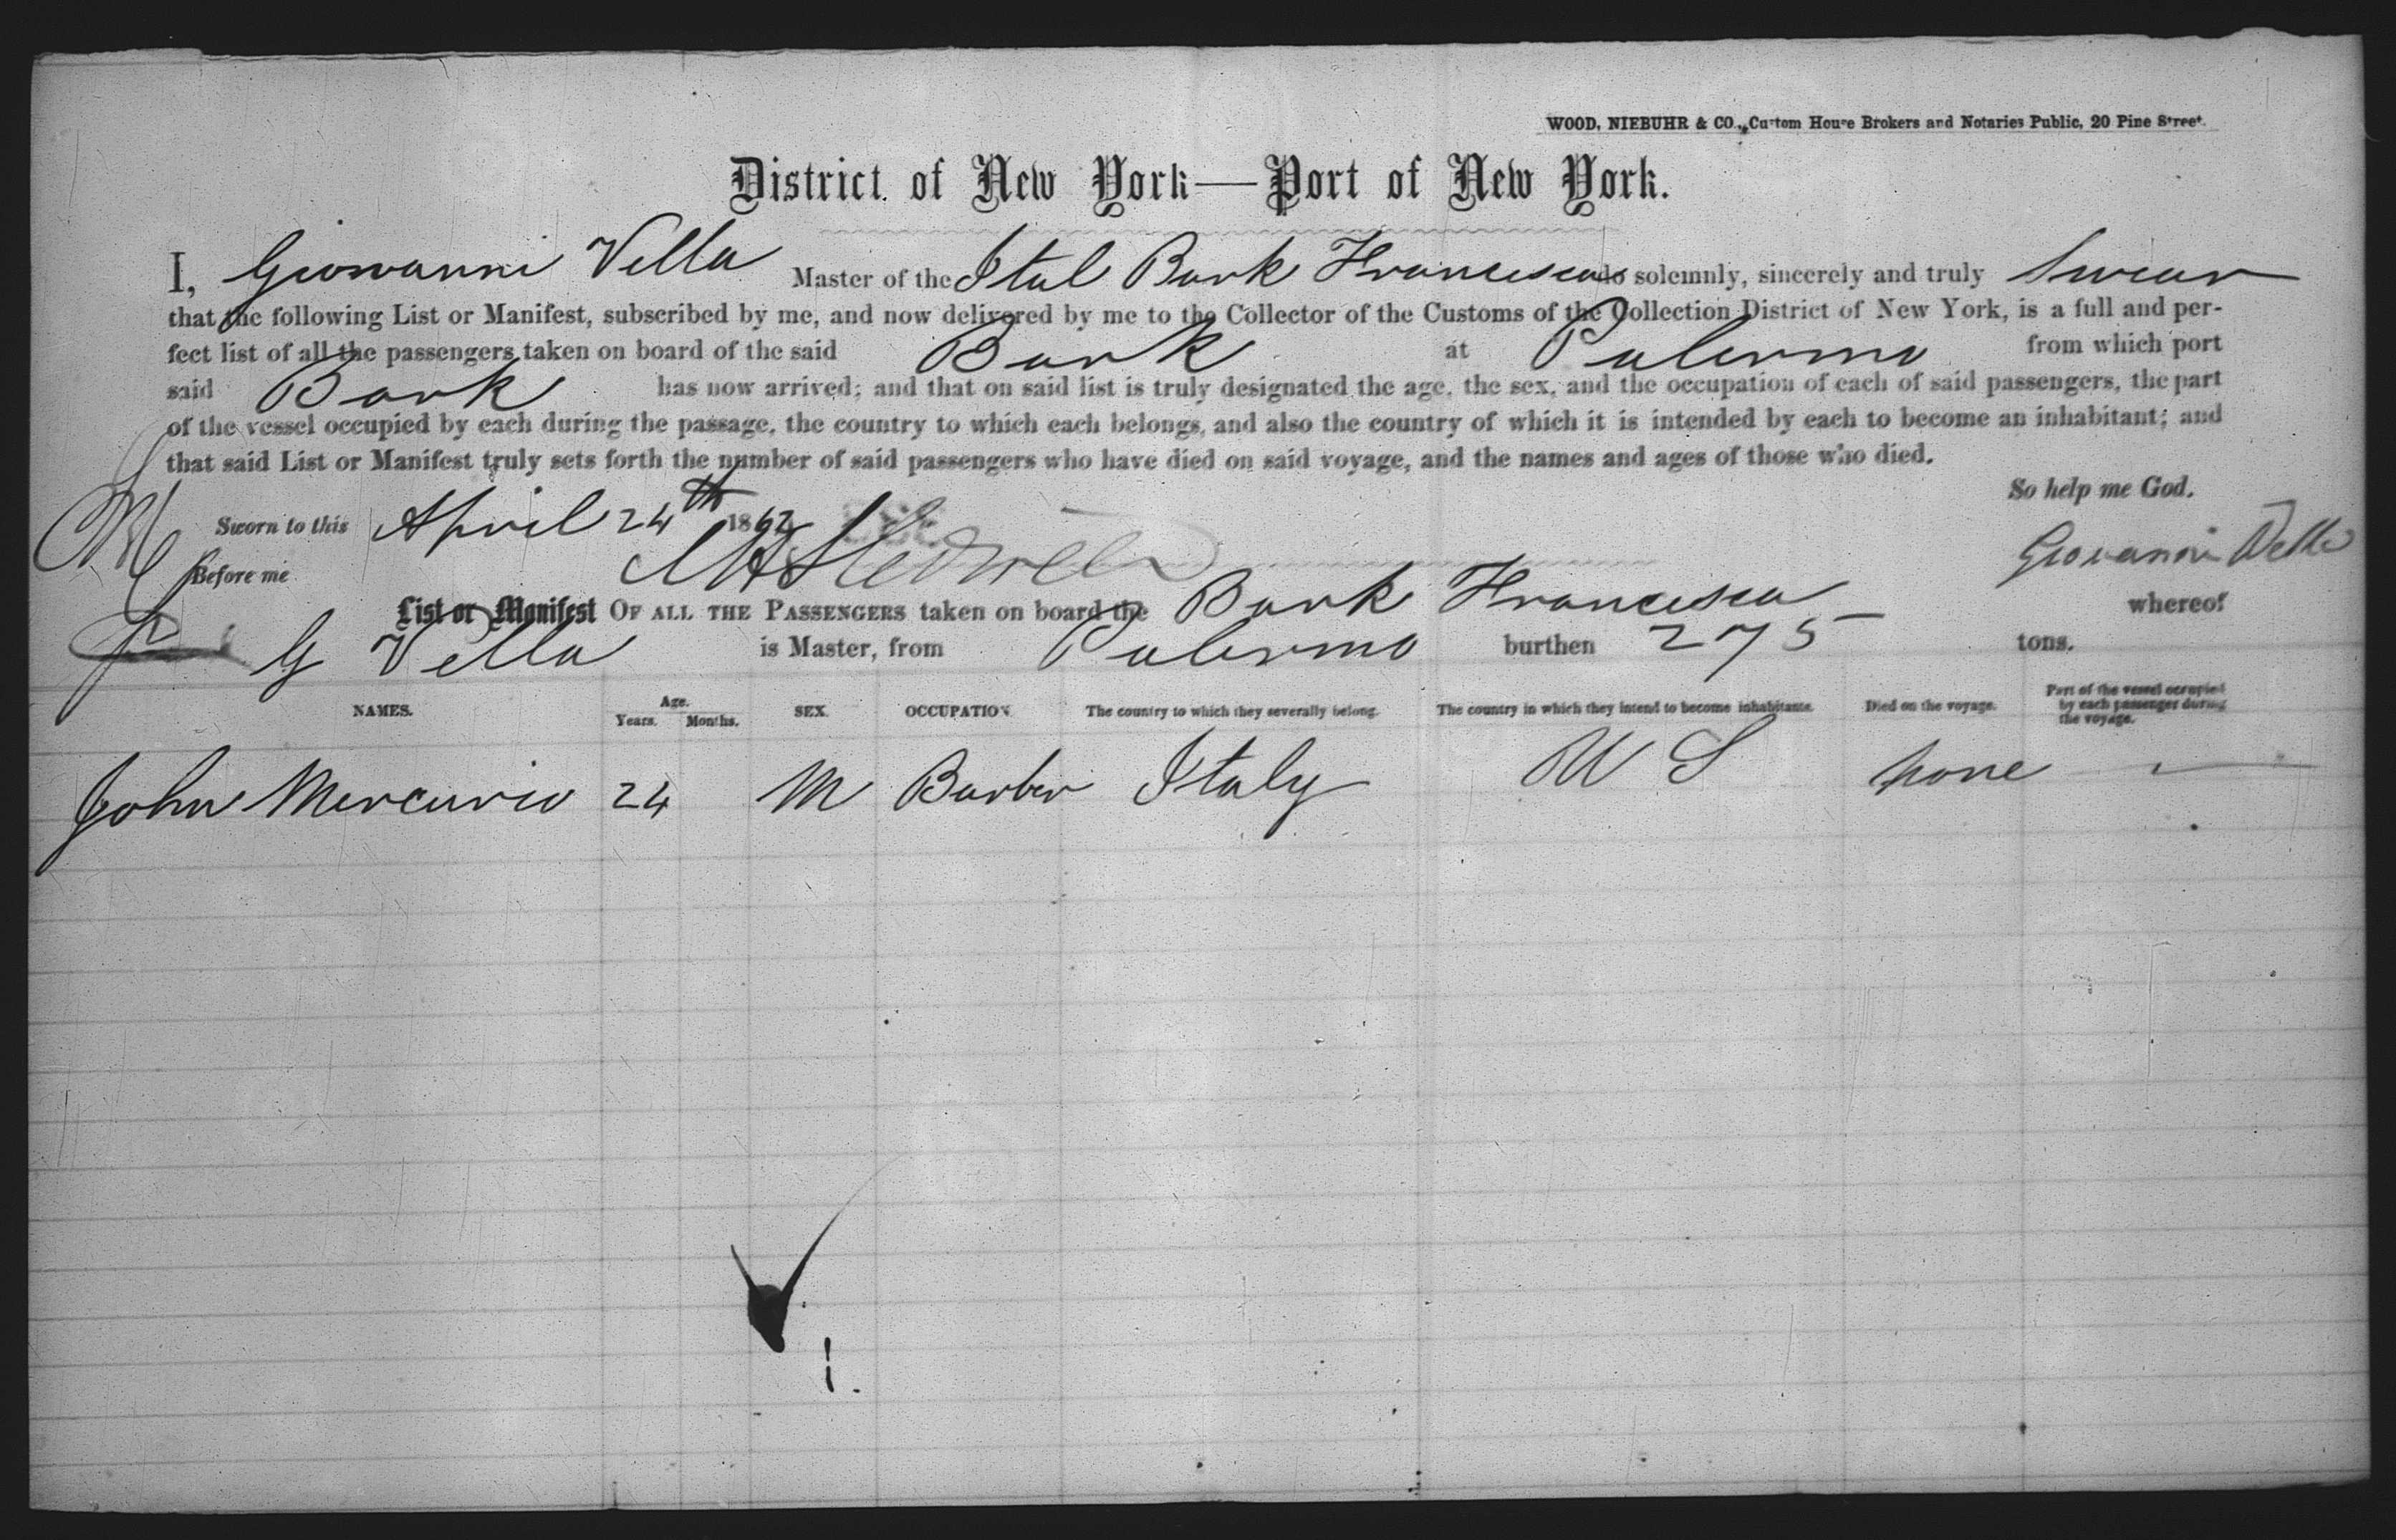 WOOD, NIEBUHR & CO., Custom House Brokers and Notaries Public, 20 Pine Street.
District of New York—Port of New York.
I, Giovanni Vella Master of the Ital Bark Francesca do solemnly, sincerely and truly Swear
that the following List or Manifest, subscribed by me, and now delivered by me to the Collector of the Customs of the Collection District of New York, is a full and per-
fect list of all the passengers taken on board of the said Bark at Palermo from which port
said Bark has now arrived; and that on said list is truly designated the age, the sex, and the occupation of each of said passengers, the part
of the vessel occupied by each during the passage, the country to which each belongs, and also the country of which it is intended by each to become an inhabitant; and
that said List or Manifest truly sets forth the number of said passengers who have died on said voyage, and the names and ages of those who died.
So help me God.
Sworn to this April 24th 186
Giovanni Vella
Before me
List or Manifest OF ALL THE PASSENGERS taken on board the Bark Francesca whereof
G Vella is Master, from Palermo burthen 275 tons.
NAMES. Age. Years. Months. SEX. OCCUPATION. The country to which they severally belong. The country in which they intend to become inhabitants. Died on the voyage. Part of the vessel occupied by each passenger during the voyage.
John Mercurio 24 M Barber Italy U S none —